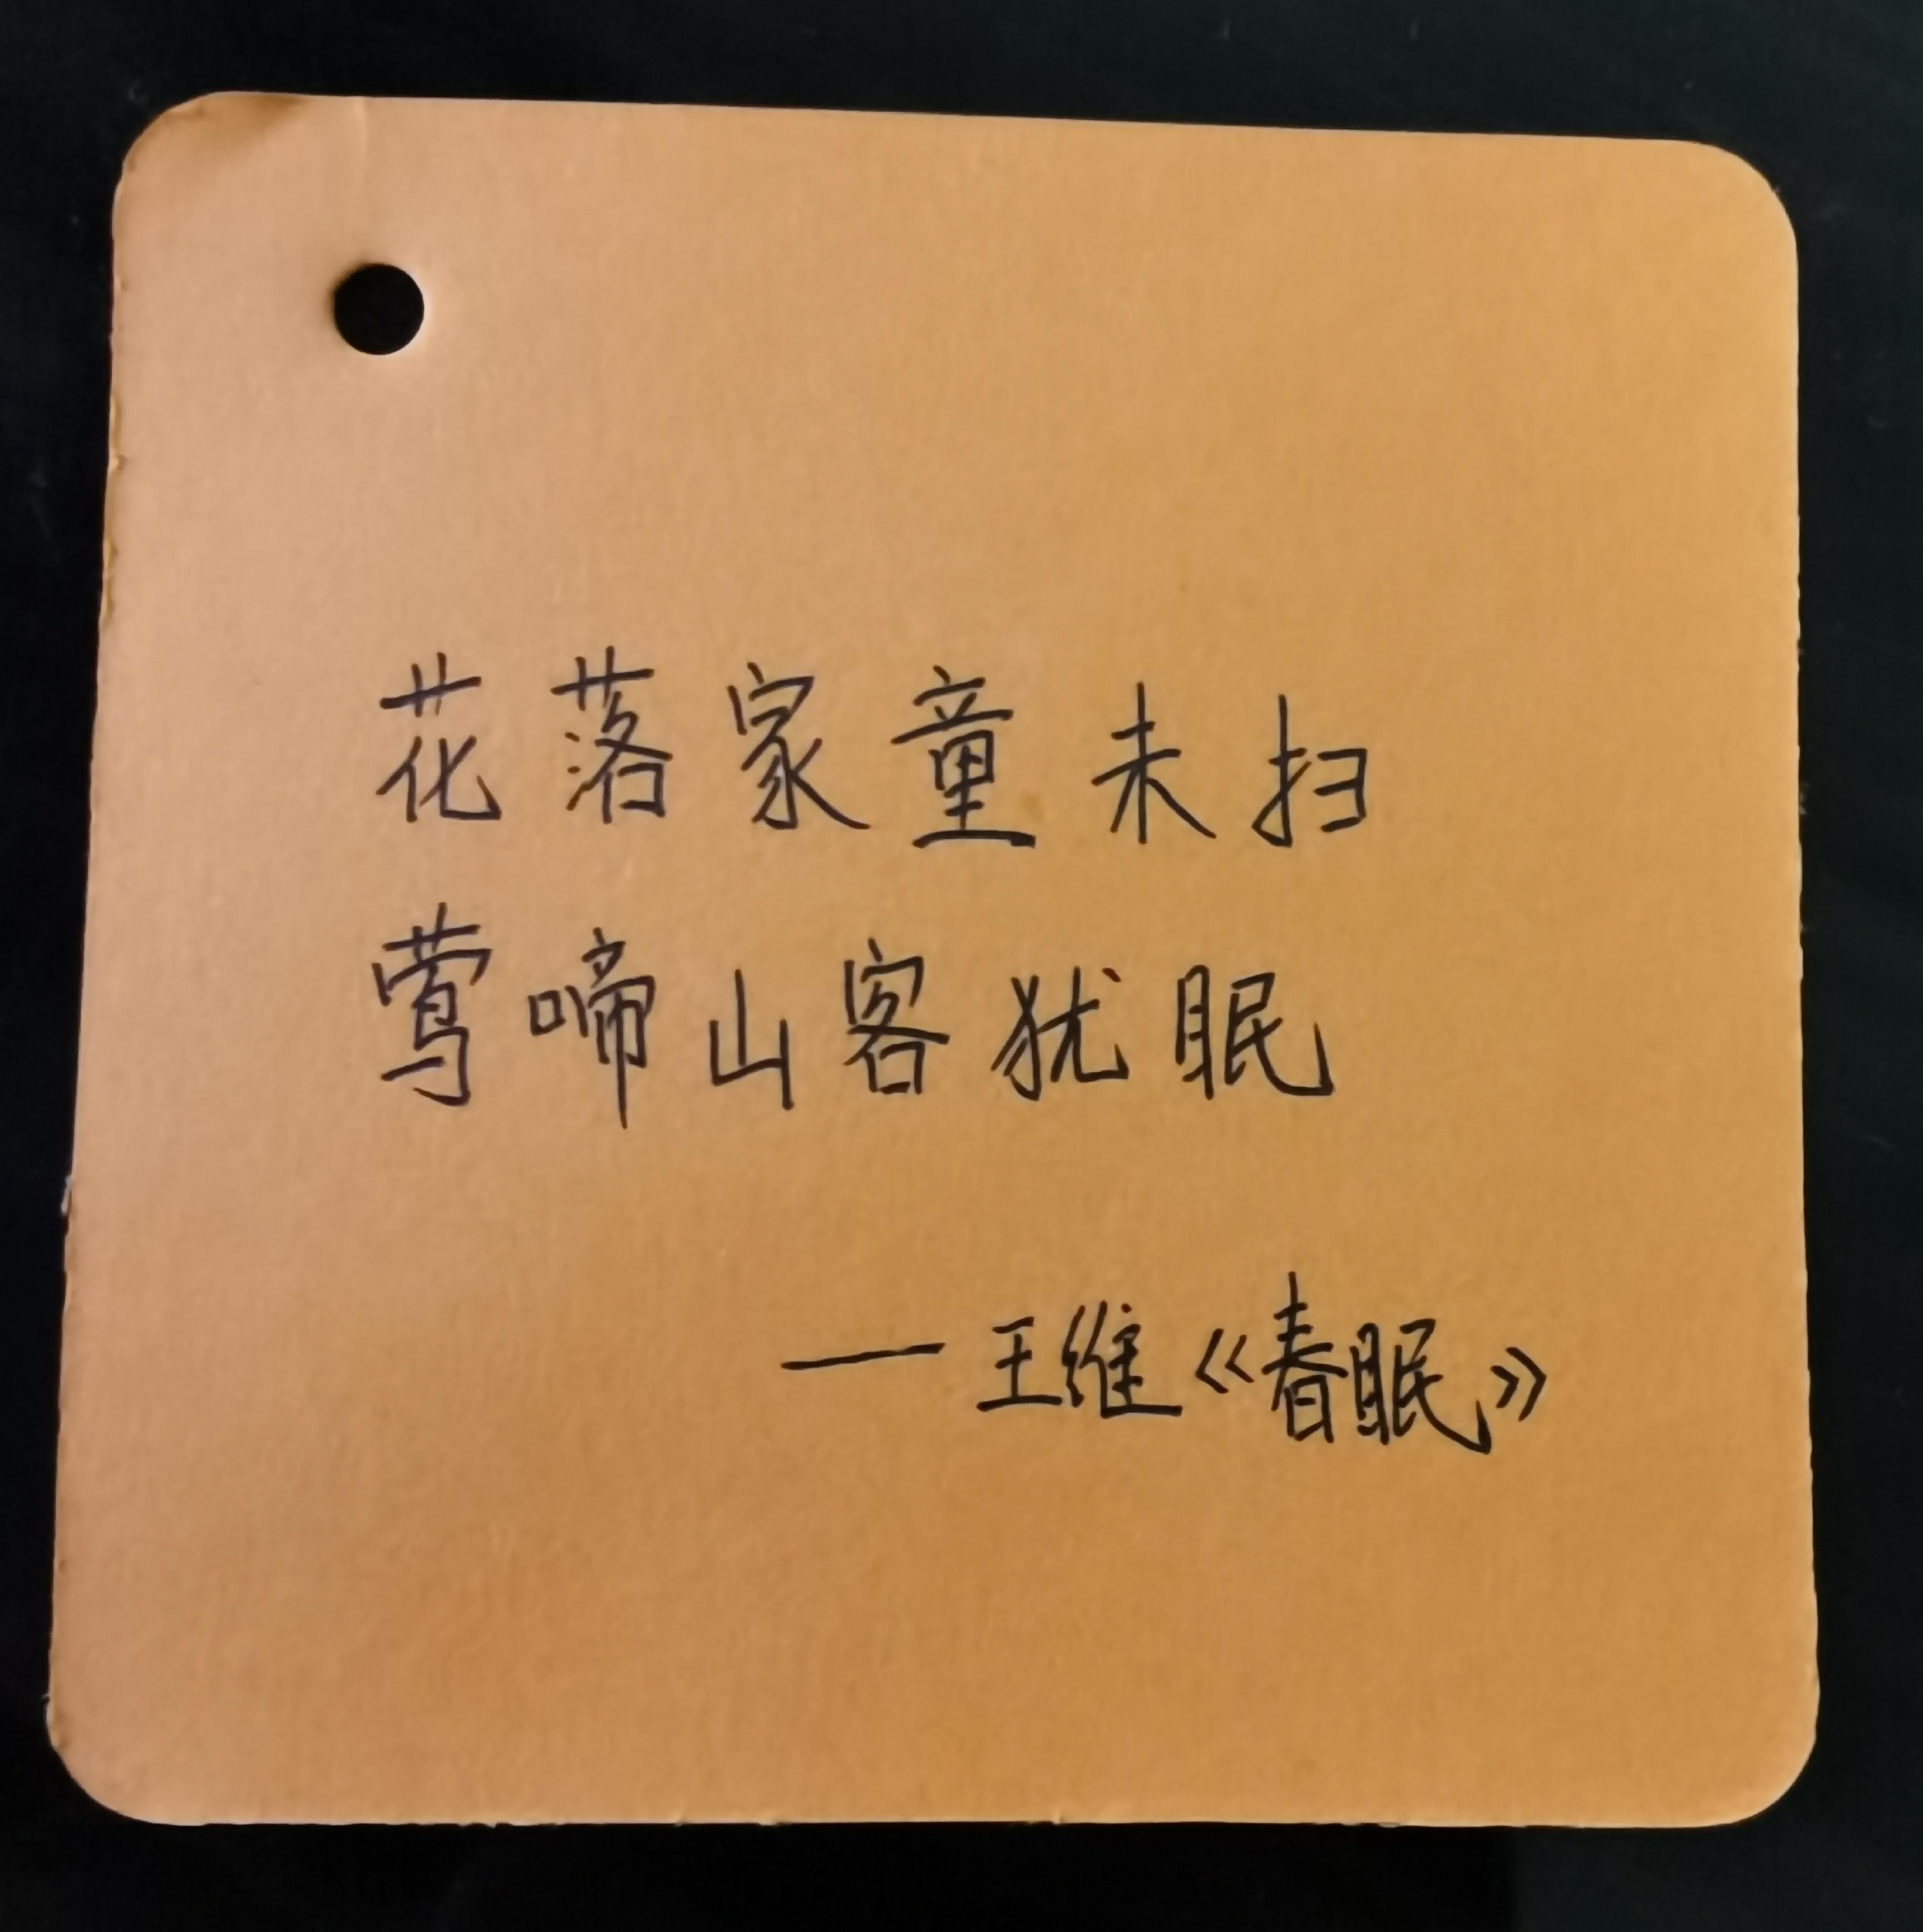 花落家童未扫
莺啼山客犹眠
—王维《春眠》